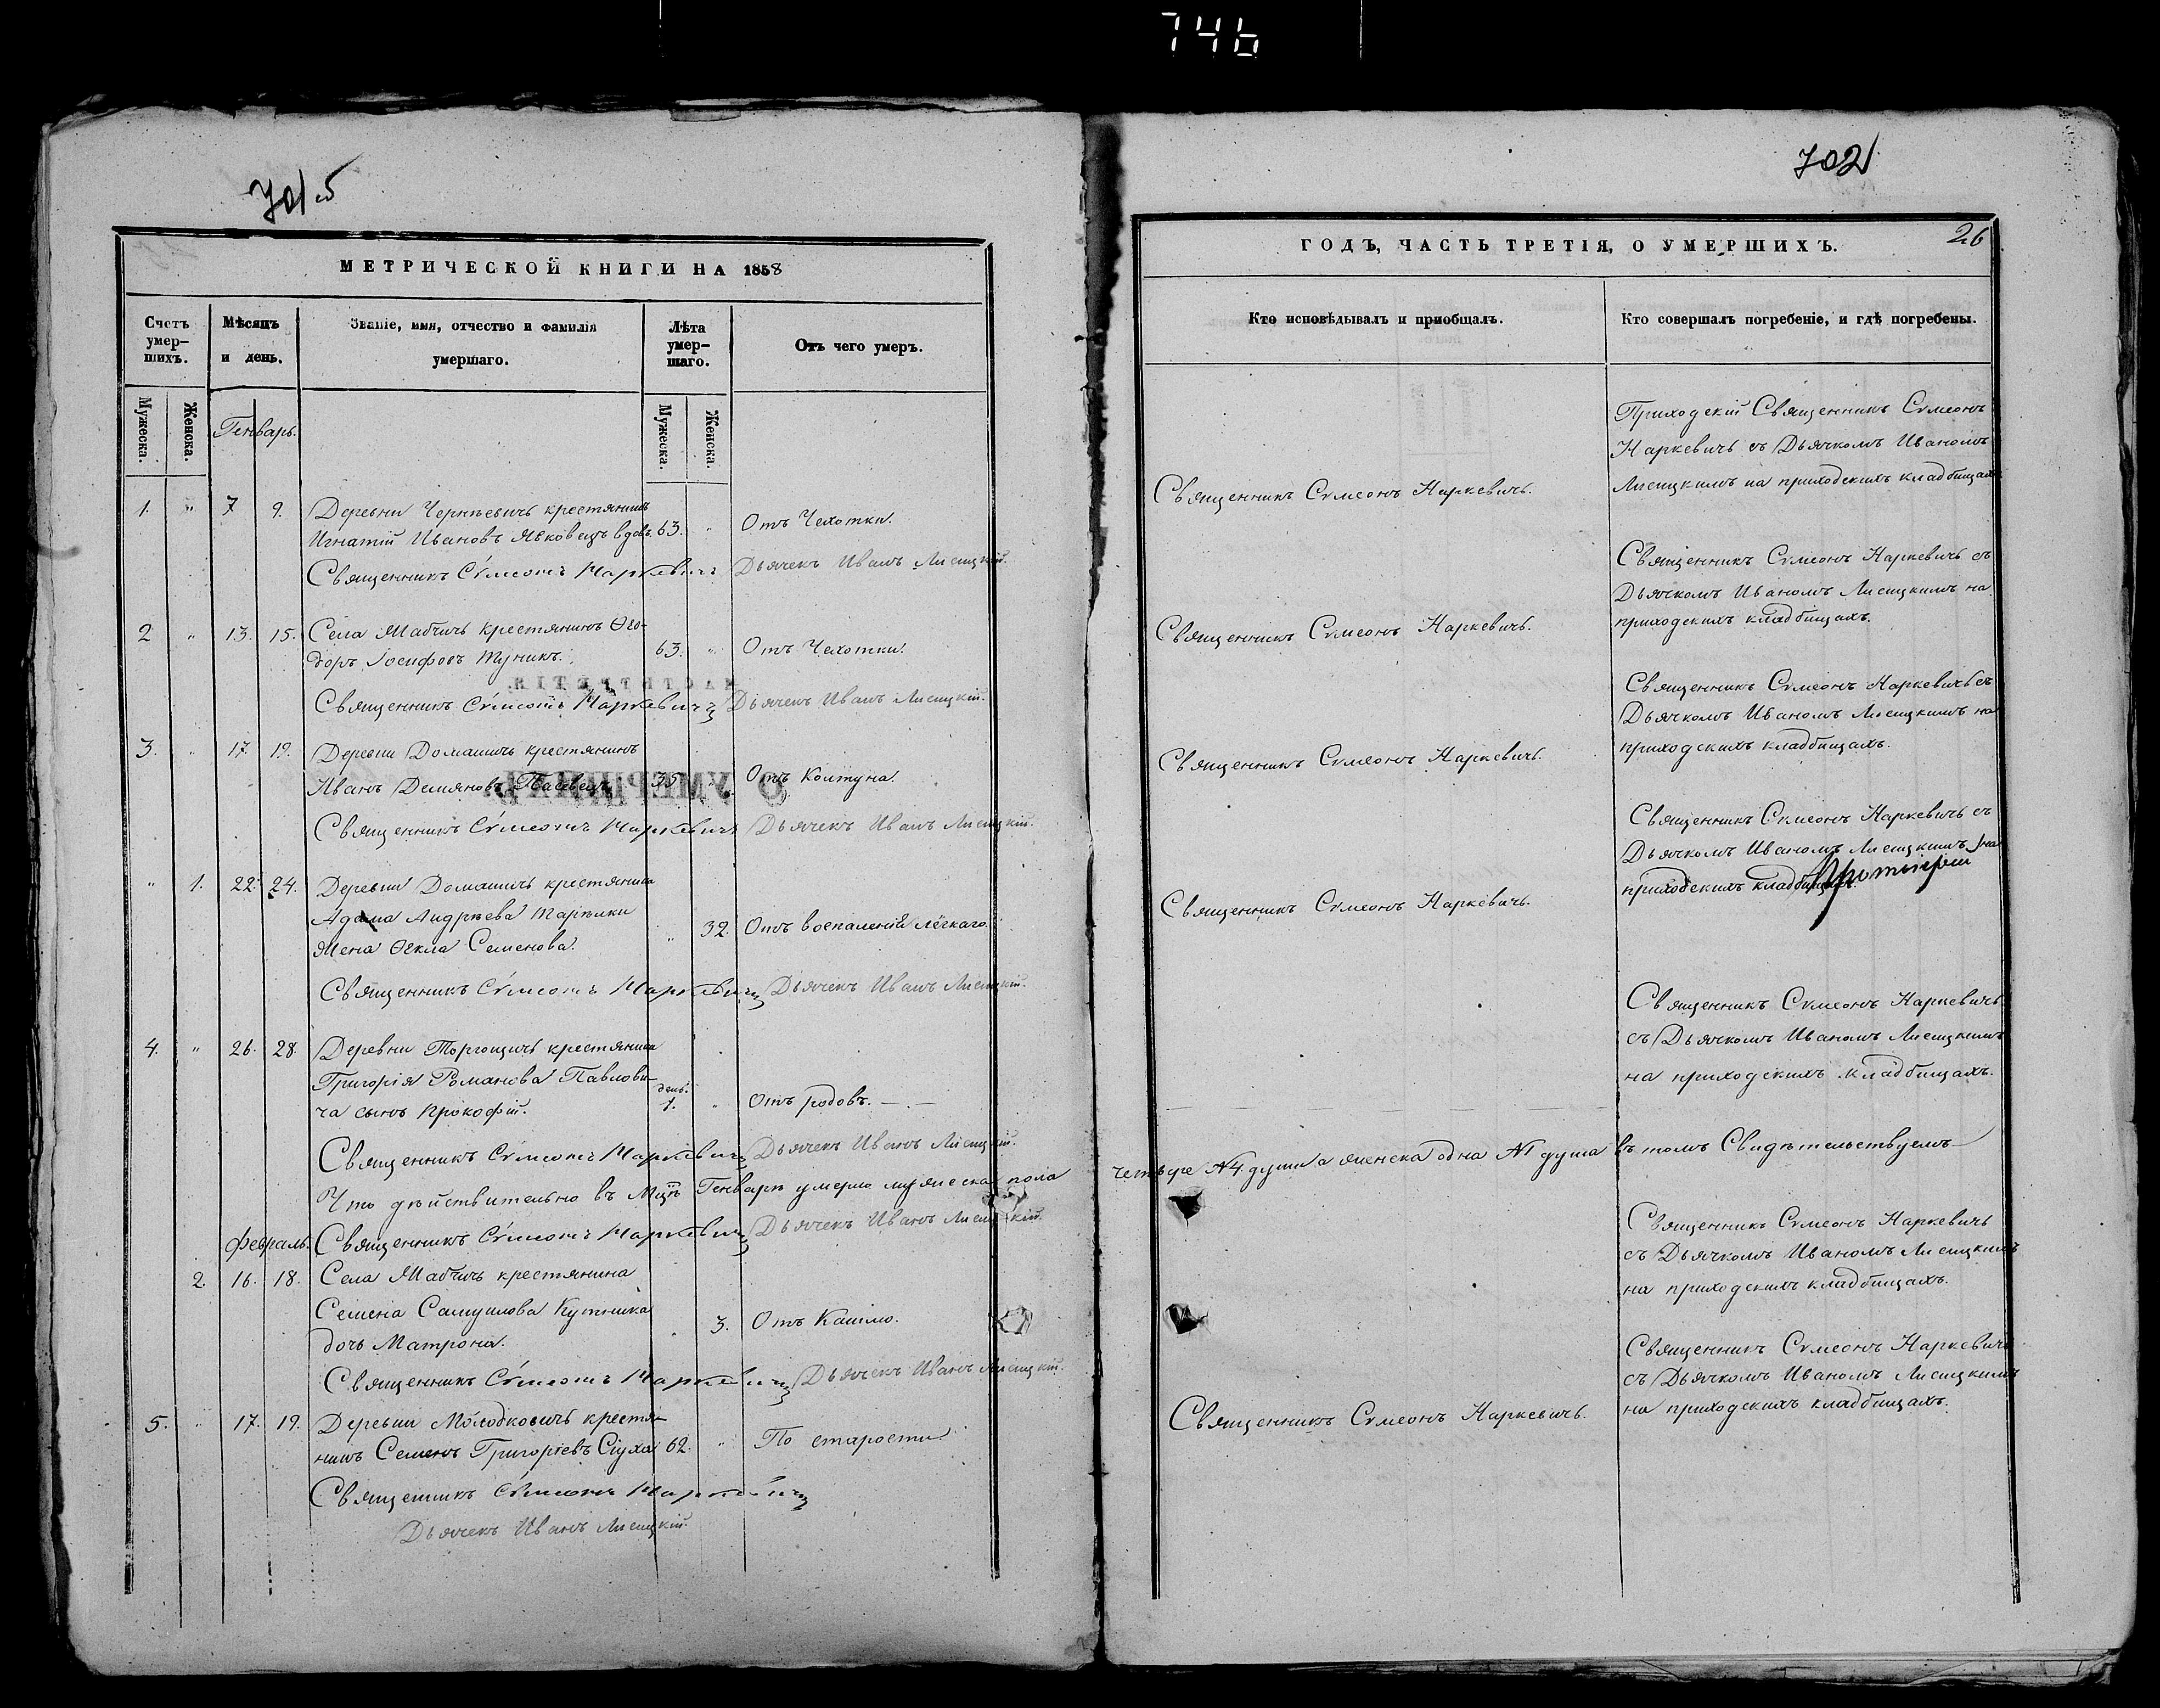 746
701 об
МЕТРИЧЕСКОЙ КНИГИ НА 1858
Счетъ умер-шихъ.
Мѣсяцъ и день.
Званіе, имя, отчество и фамилія умершаго.
Лѣта умер-шаго.
Отъ чего умеръ.
Мужеска.
Женска.
Генварь.
Мужеска.
Женска.
1. " 7 9. Деревни Чернѣевичъ крестянинъ
Игнатій Ивановъ Яковецъ вдовъ. 63. " Отъ Чехотки.
Священникъ Сѵмеонъ Наркевичъ Дьячекъ Иванъ Лисицкій.
2 " 13. 15. Села Мабчичъ крестянинъ Ѳео-
доръ Іосифовъ Жуникъ. 63. " Отъ Чехотки.
Священникъ Сѵмеонъ Наркевичъ Дьячекъ Иванъ Лисицкій.
3. " 17. 19. Деревни Домашичъ крестянинъ
Иванъ Демяновъ 35 " Отъ Колтуна.
Священникъ Сѵмеонъ Наркевичъ Дьячекъ Иванъ Лисицкій.
" 1. 22. 24. Деревни Домашичъ крестянина
Адама Андрѣева
жена Ѳекла Семенова. " 32. Отъ воспаленія лёгкаго.
Священникъ Сѵмеонъ Наркевичъ Дьячекъ Иванъ Лисицкій.
4. " 26. 28. Деревни крестянина
Григорія Романова Павлови-
ча сынъ Прокофій. день. 1. " Отъ родовъ.
Священникъ Сѵмеонъ Наркевичъ Дьячекъ Иванъ Лисицкій.
Что дѣйствительно въ Мцѣ Генварѣ умерло мужеска пола
Февраль. Священникъ Сѵмеонъ Наркевичъ Дьячекъ Иванъ Лисицкій.
2. 16. 18. Села Мабчичъ крестянина
Семена Самуилова Кутника
дочь Матрона. " 3. Отъ Кашлю.
Священникъ Сѵмеонъ Наркевичъ Дьячекъ Иванъ Лисицкій.
5. " 17. 19. Деревни Молодковичъ крестя-
нинъ Семенъ Григоріевъ Сіуха 62. " По старости
Священникъ Сѵмеонъ Наркевичъ
Дьячекъ Иванъ Лисицкій.
702
26
ГОДЪ, ЧАСТЬ ТРЕТІЯ, О УМЕРШИХЪ.
Кто исповѣдывалъ и приобщалъ.
Кто совершалъ погребеніе, и гдѣ погребены.
Приходскій Священникъ Сѵмеонъ
Наркевичъ съ Дьячкомъ Иваномъ
Священникъ Сѵмеонъ Наркевичъ. Лисицкимъ на приходскихъ кладбищахъ.
Священникъ Сѵмеонъ Наркевичъ съ
Дьячкомъ Иваномъ Лисицкимъ на
Священникъ Сѵмеонъ Наркевичъ. приходскихъ кладбищахъ.
Священникъ Сѵмеонъ Наркевичъ съ
Дьячкомъ Иваномъ Лисицкимъ на
Священникъ Сѵмеонъ Наркевичъ. приходскихъ кладбищахъ.
Священникъ Сѵмеонъ Наркевичъ съ
Дьячкомъ Иваномъ Лисицкимъ на
Священникъ Сѵмеонъ Наркевичъ. приходскихъ кладбищахъ. Протоіерей
Священникъ Сѵмеонъ Наркевичъ
съ Дьячкомъ Иваномъ Лисицкимъ
на приходскихъ кладбищахъ.
четыре №4. души а женска одна №1 душа въ томъ Свидѣтельствуемъ
Священникъ Сѵмеонъ Наркевичъ
съ Дьячкомъ Иваномъ Лисицкимъ
на приходскихъ кладбищахъ.
Священникъ Сѵмеонъ Наркевичъ
съ Дьячкомъ Иваномъ Лисицкимъ
Священникъ Сѵмеонъ Наркевичъ. на приходскихъ кладбищахъ.